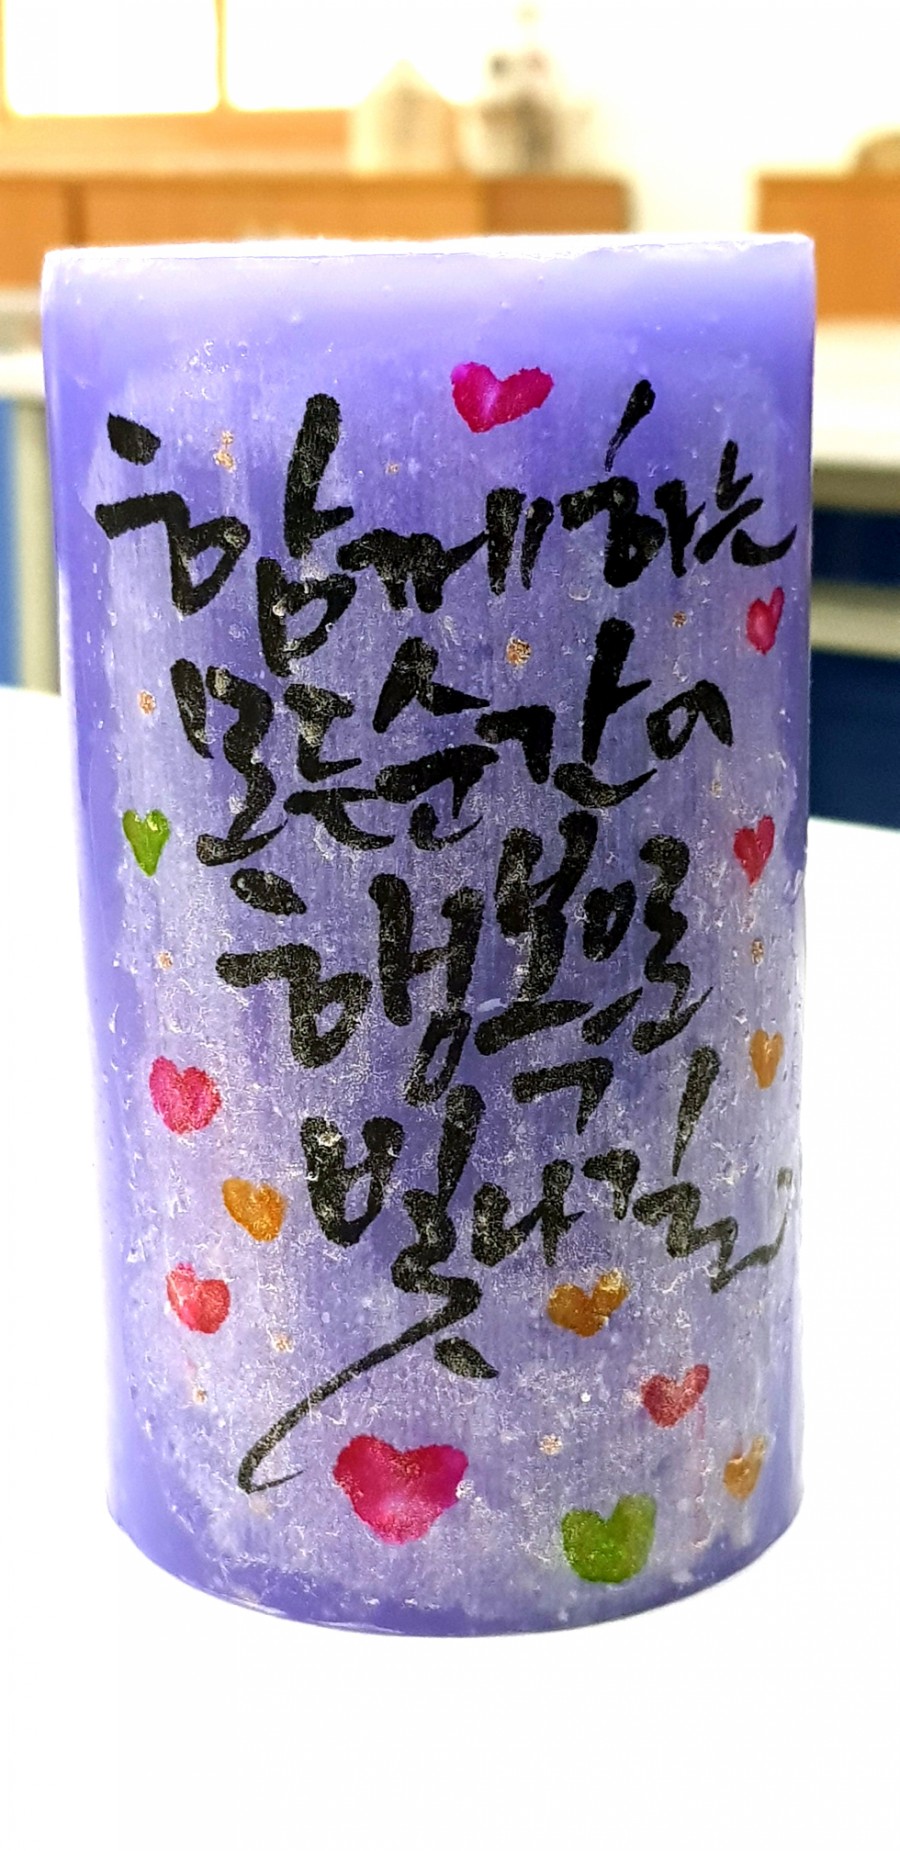 함께하는
모든순간이
행복으로
빛나길